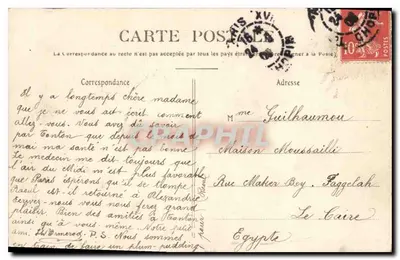 CARTE POSTALE
La correspondance au recto n'est pas acceptée par tous les pays étrangers
Correspondance
Il y a longtemps chère madame
que je ne vous ai écrit comment
allez-vous. Vous avez dû savoir
par Tonton que depuis le mois de
mai ma santé n'est pas bonne
Le medecin me dit toujours que
l'air du Midi m'est plus favorable
que Paris espérons qu'il se trompe
Raoul est il retourné à Alexandrie
écrivez-nous vous nous ferez grand
plaisir Bien des amitiés à Tonton
ainsi qu'à vous même Votre petite
P.S. Nous sommes
en train de faire un plum-pudding
Adresse
Mme Guilhaumou
Maison Moussaillé
Rue Maher Bey. Faggalah
Le Caire
Egypte
PARIS XVI
CHOPIN